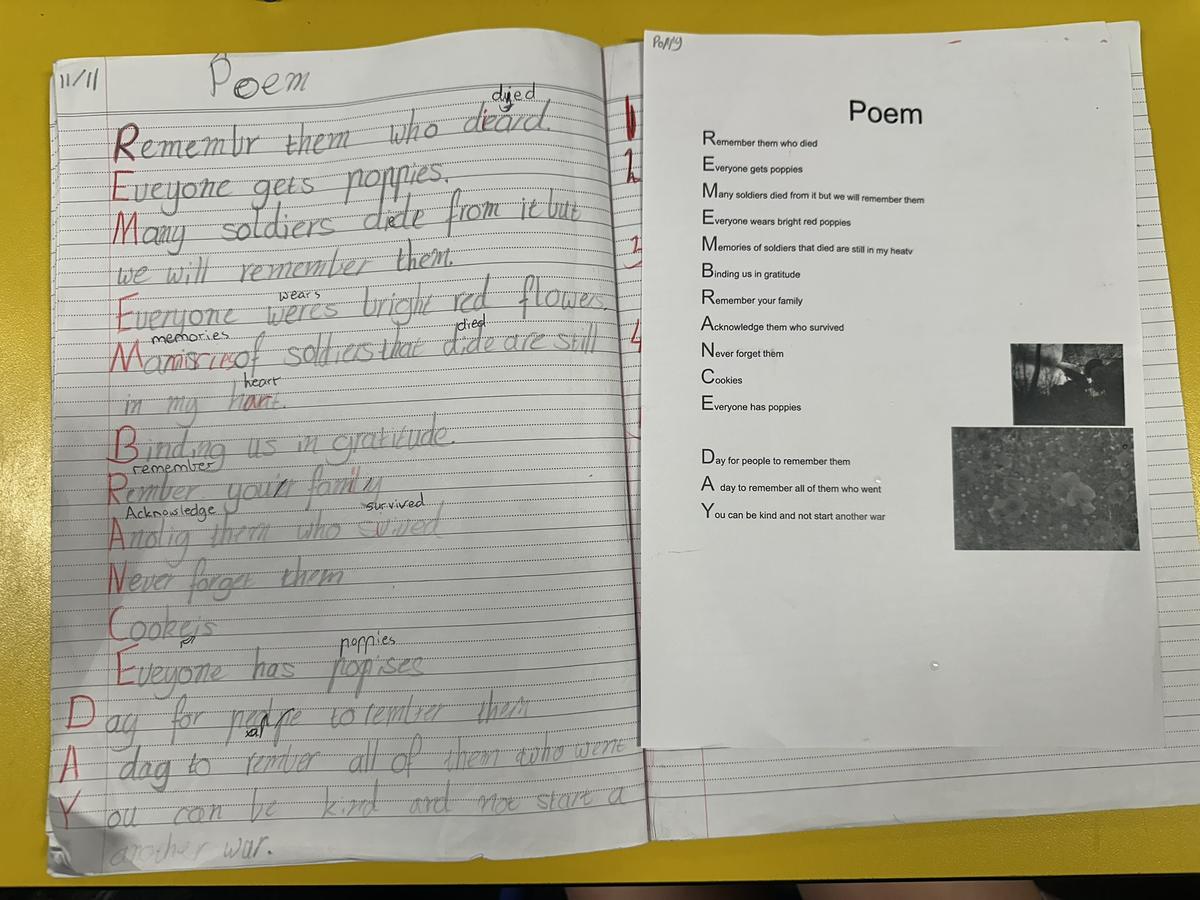 11/11 Poem
dyed
Remembr them who deard.
Eveyone gets poppies.
Many soldiers dide from it but
we will remember them.
wears
Everyone weres bright red flowers.
memories died
Mamories of soldiers that dide are still
heart
in my hart.
Binding us in gratitude.
remember
Rember your family
Acknowledge survived
Anolig them who suived
Never forget them
Cookeis
poppies
Eveyone has popises
Day for to rember them
A dag to rember all of them who went
You can be kind and not start a
another war.
Poppy
Poem
Remember them who died
Everyone gets poppies
Many soldiers died from it but we will remember them
Everyone wears bright red poppies
Memories of soldiers that died are still in my heatv
Binding us in gratitude
Remember your family
Acknowledge them who survived
Never forget them
Cookies
Everyone has poppies
Day for people to remember them
A day to remember all of them who went
You can be kind and not start another war